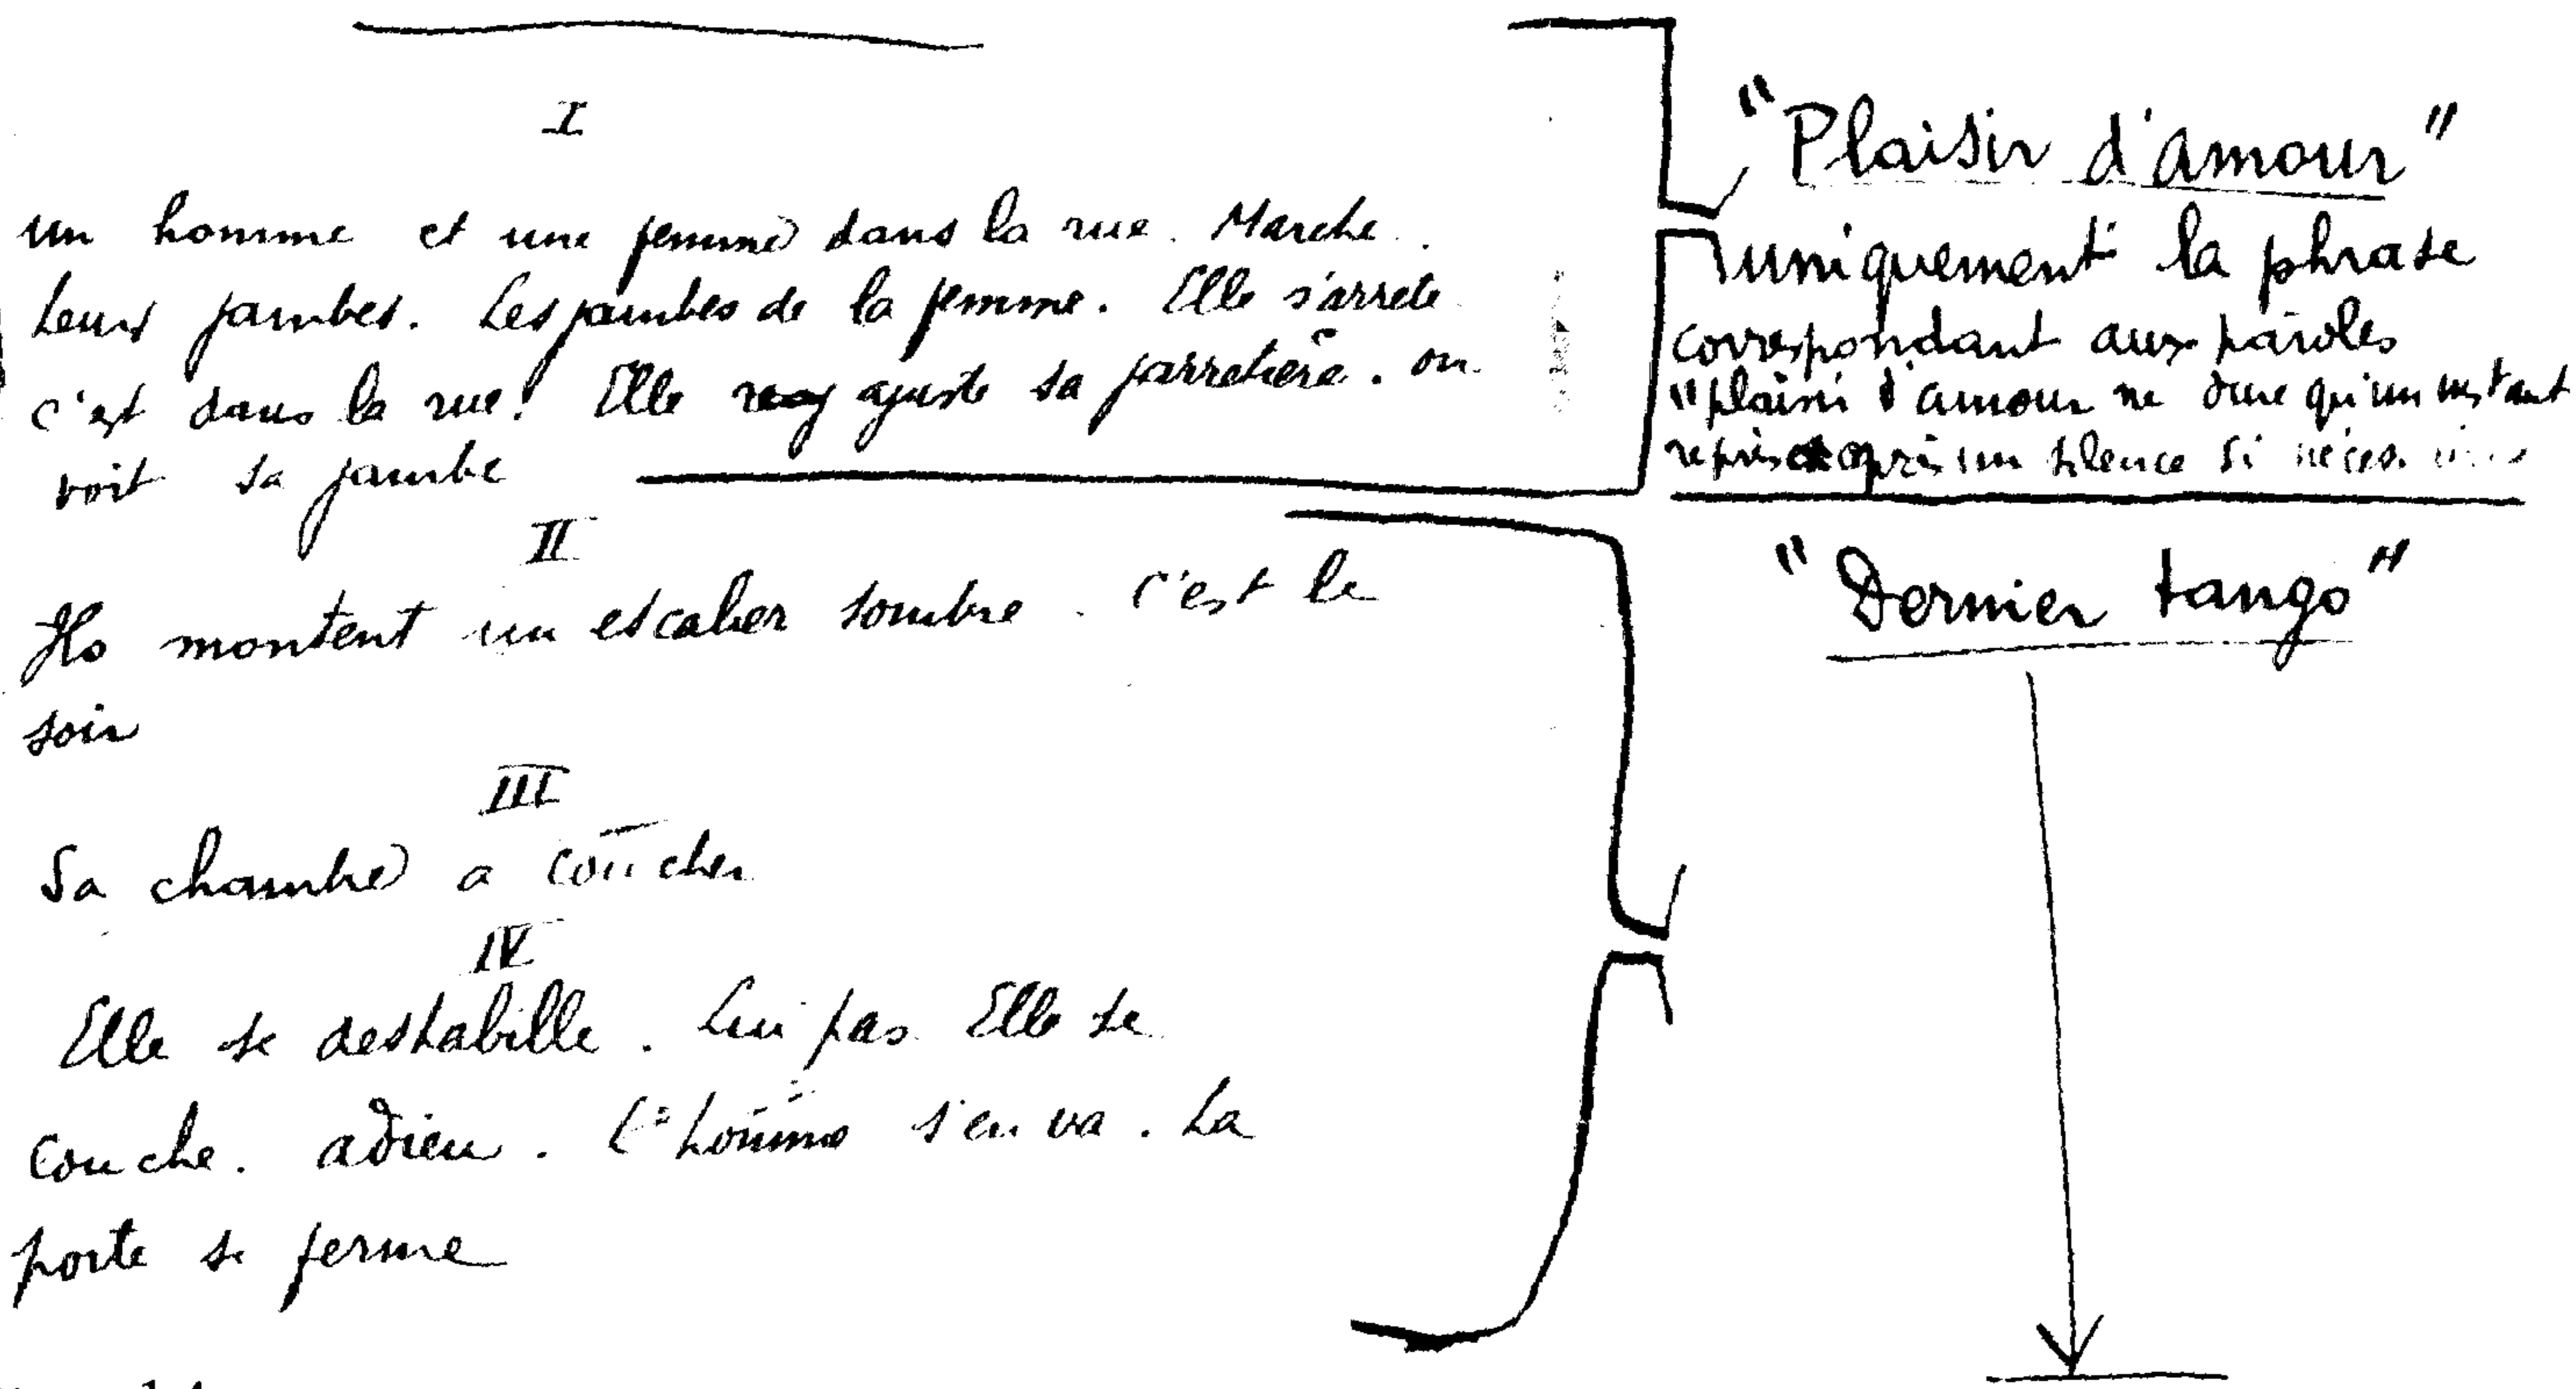 I
un homme et une femme dans la rue. Marche.
Leurs jambes. Les jambes de la femme. Elle s'arrete
c'est dans la rue! Elle ajuste sa jarretière. on
voit sa jambe
II
Ils montent un escalier sombre. C'est le
soir
III
Sa chambre a coucher
IV
Elle se deshabille. Lui pas Elle se
couche. adieu. L'homme s'en va. La
porte se ferme
"Plaisir d'amour"
uniquement la phrase
correspondant aux paroles
"plaisir d'amour ne dure qu'un instant
reprise après un silence si
"Dernier tango"